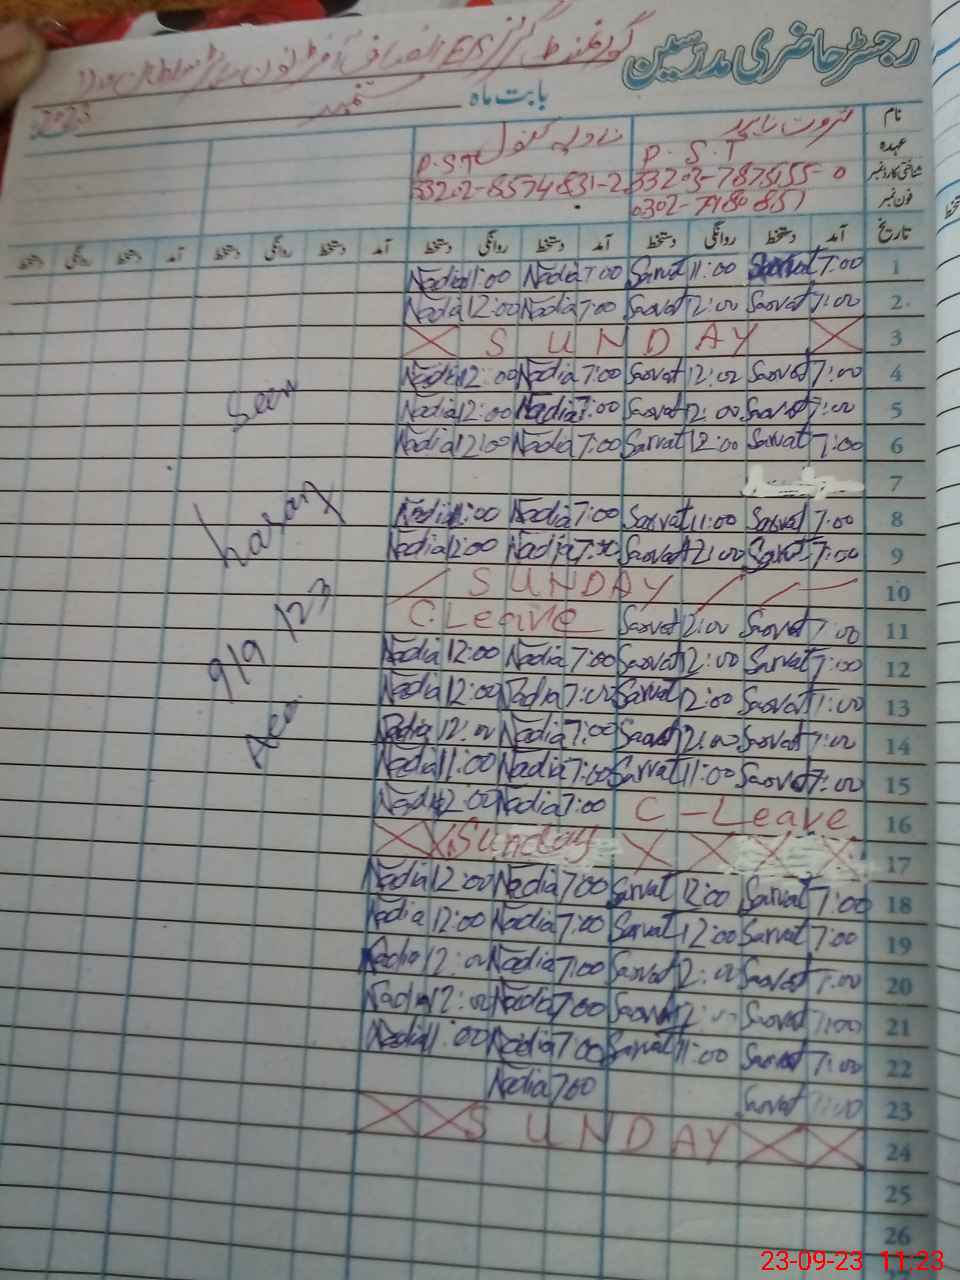 رجسٹر حاضری مدرسین
گورنمنٹ گرلز
بابت ماہ ستمبر 2023
نام ثروت نادیہ کنول
عہدہ P.S.T P.ST
شناختی کارڈ نمبر 33203-7875155-0 33202-8574831-2
فون نمبر 0302-7180851
تاریخ آمد دستخط روانگی دستخط آمد دستخط روانگی دستخط آمد دستخط روانگی دستخط آمد دستخط روانگی دستخط
1 7:00 Sarvat 11:00 Sarvat 7:00 Nadia 11:00 Nadia
2 7:00 Sarvat 12:00 Sarvat 7:00 Nadia 12:00 Nadia
3 SUNDAY
4 7:00 Sarvat 12:00 Sarvat 7:00 Nadia 12:00 Nadia
5 7:00 Sarvat 12:00 Sarvat 7:00 Nadia 12:00 Nadia
6 7:00 Sarvat 12:00 Sarvat 7:00 Nadia 12:00 Nadia
Seen
7
8 7:00 Sarvat 11:00 Sarvat 7:00 Nadia 11:00 Nadia
9 7:00 Sarvat 12:00 Sarvat 7:00 Nadia 12:00 Nadia
10 SUNDAY
11 7:00 Sarvat 12:00 Sarvat C.Leave
9/9/23
12 7:00 Sarvat 12:00 Sarvat 7:00 Nadia 12:00 Nadia
13 7:00 Sarvat 12:00 Sarvat 7:00 Nadia 12:00 Nadia
14 7:00 Sarvat 12:00 Sarvat 7:00 Nadia 12:00 Nadia
15 7:00 Sarvat 11:00 Sarvat 7:00 Nadia 11:00 Nadia
16 C-Leave 7:00 Nadia 12:00 Nadia
17 Sunday
18 7:00 Sarvat 12:00 Sarvat 7:00 Nadia 12:00 Nadia
19 7:00 Sarvat 12:00 Sarvat 7:00 Nadia 12:00 Nadia
20 7:00 Sarvat 12:00 Sarvat 7:00 Nadia 12:00 Nadia
21 7:00 Sarvat 12:00 Sarvat 7:00 Nadia 12:00 Nadia
22 7:00 Sarvat 11:00 Sarvat 7:00 Nadia 11:00 Nadia
23 7:00 Sarvat 7:00 Nadia
24 SUNDAY
25
26
23-09-23 11:23